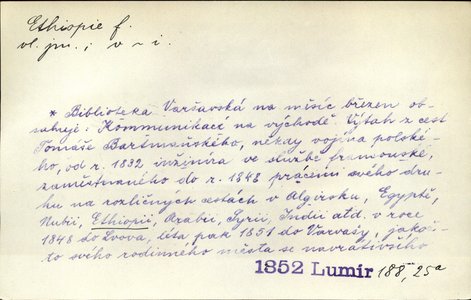 Ethiopie f.
vl. jm. ; v ~ i.
* Biblioteka Varšavská na měsíc březen ob-
sahuje: Kommunikací na východě. Výtah z cest
Tomáše Bartmaňského, někdy vojína polské-
ho, od r. 1832 inžinira ve službě francouské,
zaměstnaného do r. 1848 pracemi svého dru-
hu na rozličných cestách v Algiroku, Egyptě,
Nubii, Ethiopii, Arabii, Syrii, Indii atd. v roce
1848 do Lvova, léta pak 1851 do Varšavy, jakož-
to svého rodinného města se navrátivšího
1852 Lumír 188, 25a